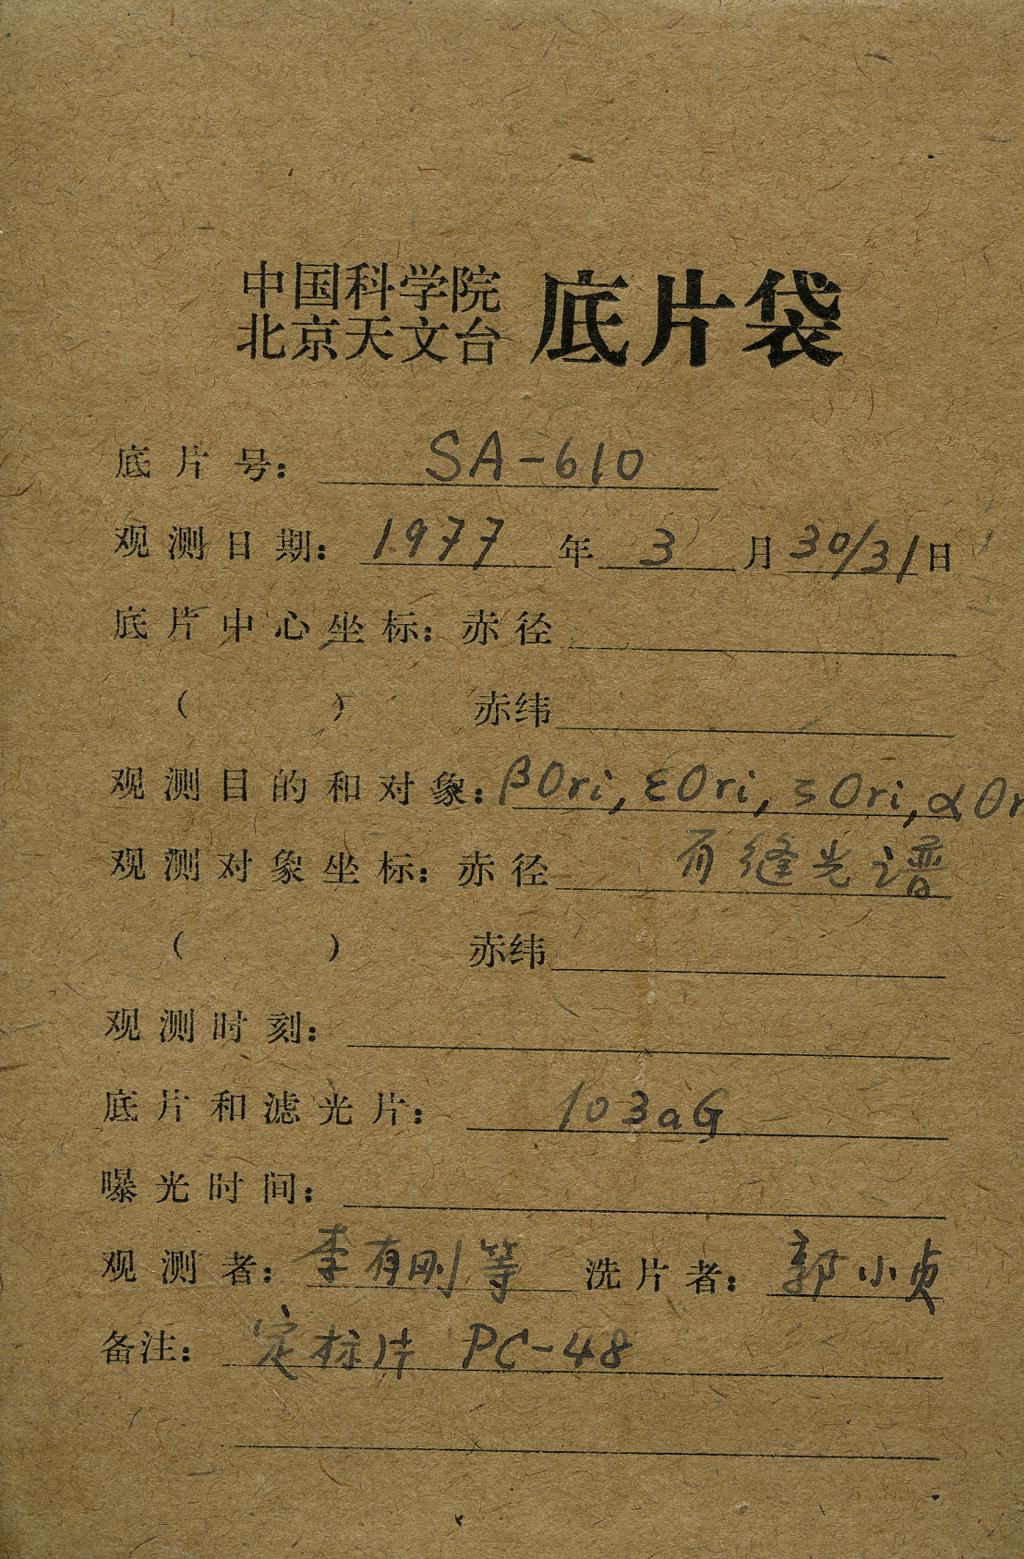 中国科学院
北京天文台 底片袋
底片号: SA-610
观测日期: 1977年3月30/31日
底片中心坐标: 赤径
( ) 赤纬
观测目的和对象: βOri, εOri, ζOri, αOr
观测对象坐标: 赤径 有缝光谱
( ) 赤纬
观测时刻:
底片和滤光片: 103aG
曝光时间:
观测者: 李有刚等 洗片者: 郭小贞
备注: 定标片 PC-48